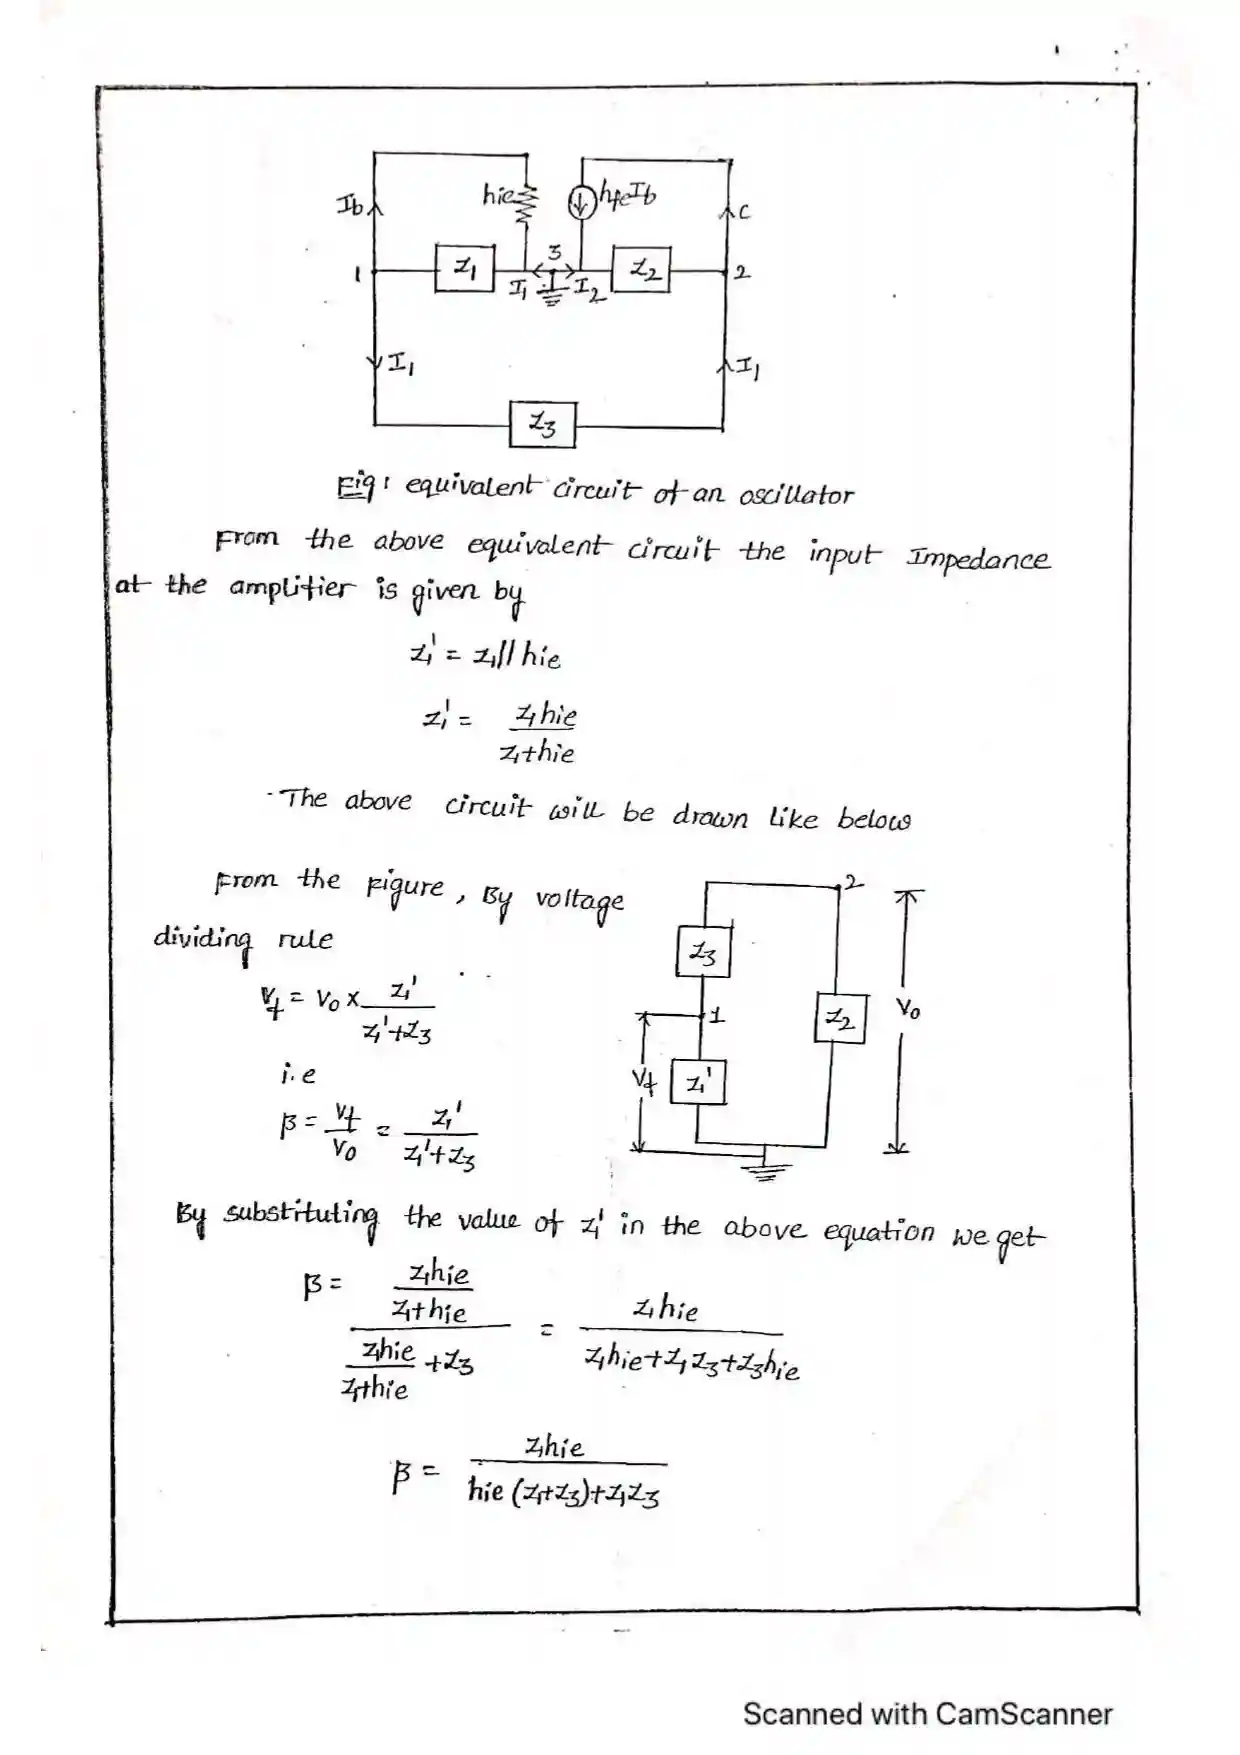 Ib
hie
hfeIb
C
1
Z1
3
Z2
2
I1
I2
I1
I1
Z3
Fig: equivalent circuit of an oscillator
From the above equivalent circuit the input Impedance
at the amplifier is given by
Z1' = Z1//hie
Z1' = Z1hie / Z1+hie
The above circuit will be drawn like below
From the Figure, By voltage
dividing rule
Vf = Vo x Z1' / Z1'+Z3
i.e
β = Vf / Vo = Z1' / Z1'+Z3
2
Z3
1
Z2
Vo
Vf
Z1'
By substituting the value of Z1' in the above equation we get
β = Z1hie / Z1+hie / Z1hie / Z1+hie +Z3 = Z1hie / Z1hie+Z1Z3+Z3hie
β = Z1hie / hie (Z1+Z3)+Z1Z3
Scanned with CamScanner